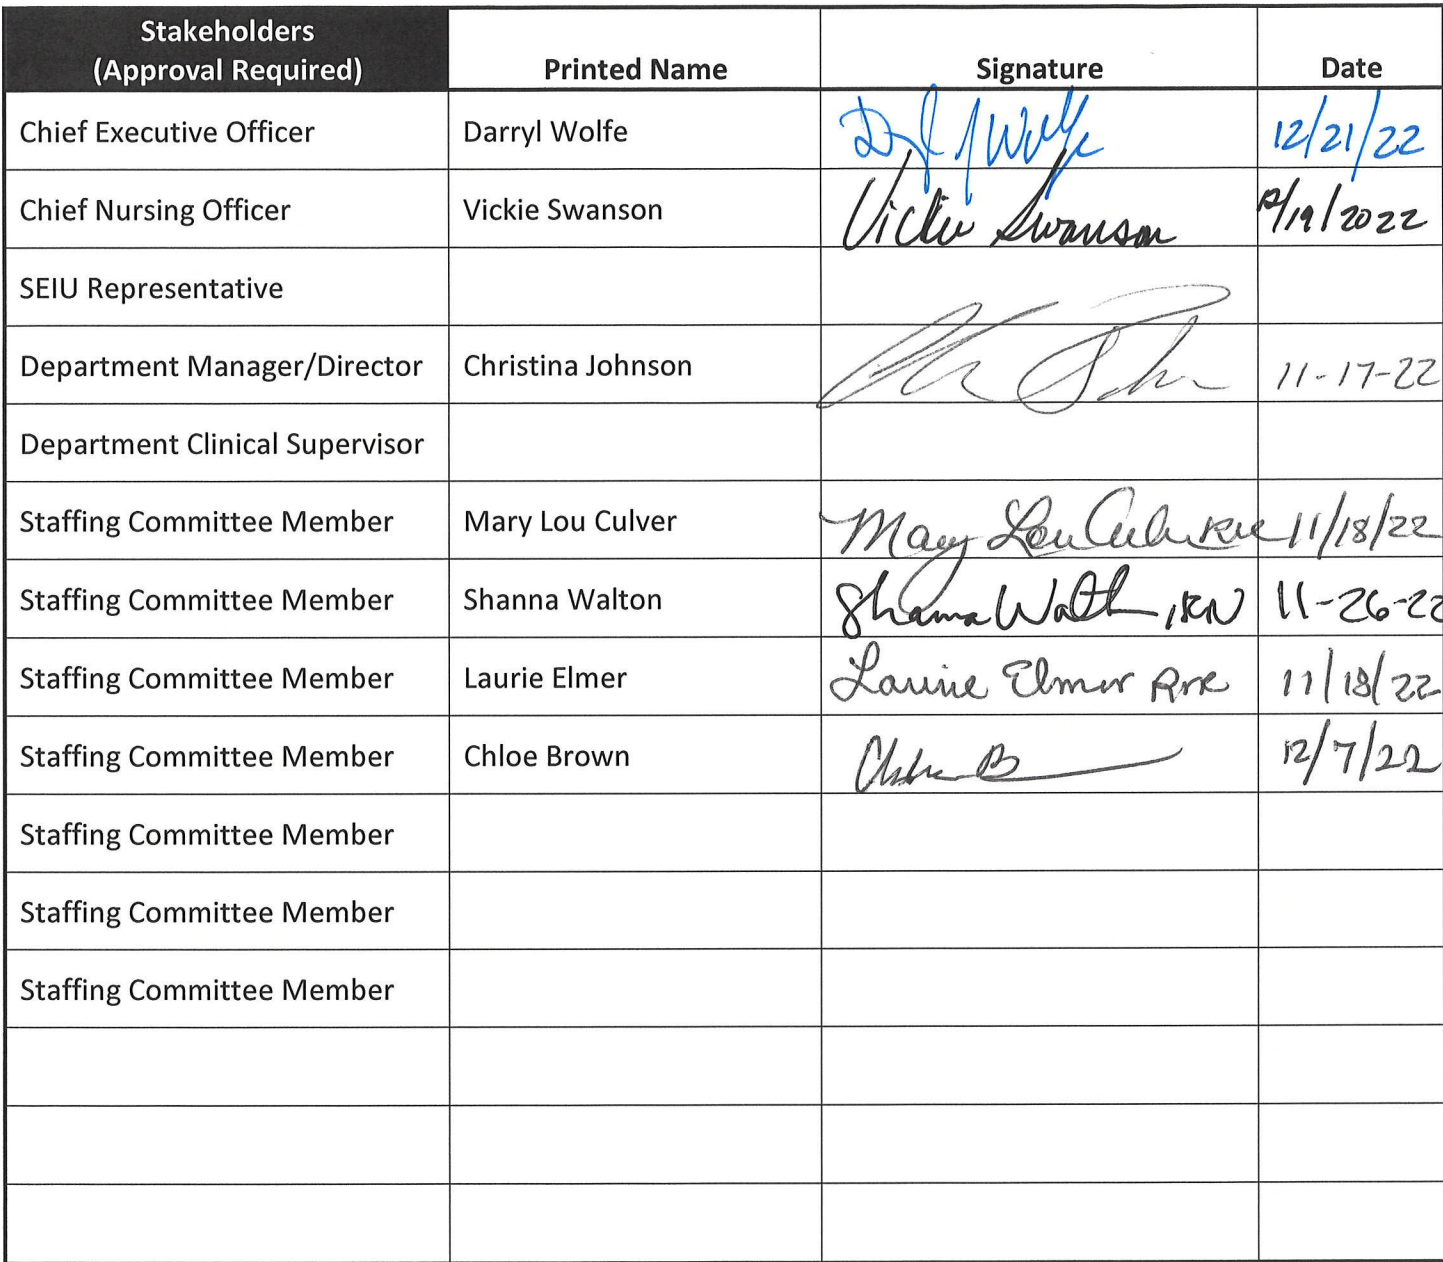 Stakeholders
(Approval Required) Printed Name Signature Date
Chief Executive Officer Darryl Wolfe Wolfe 12/21/22
Chief Nursing Officer Vickie Swanson Vickie Swanson 12/19/2022
SEIU Representative
Department Manager/Director Christina Johnson 11-17-22
Department Clinical Supervisor
Staffing Committee Member Mary Lou Culver Mary Lou Culver 11/18/22
Staffing Committee Member Shanna Walton Shanna Walton, RN 11-26-22
Staffing Committee Member Laurie Elmer Laurie Elmer 11/18/22
Staffing Committee Member Chloe Brown 12/7/22
Staffing Committee Member
Staffing Committee Member
Staffing Committee Member